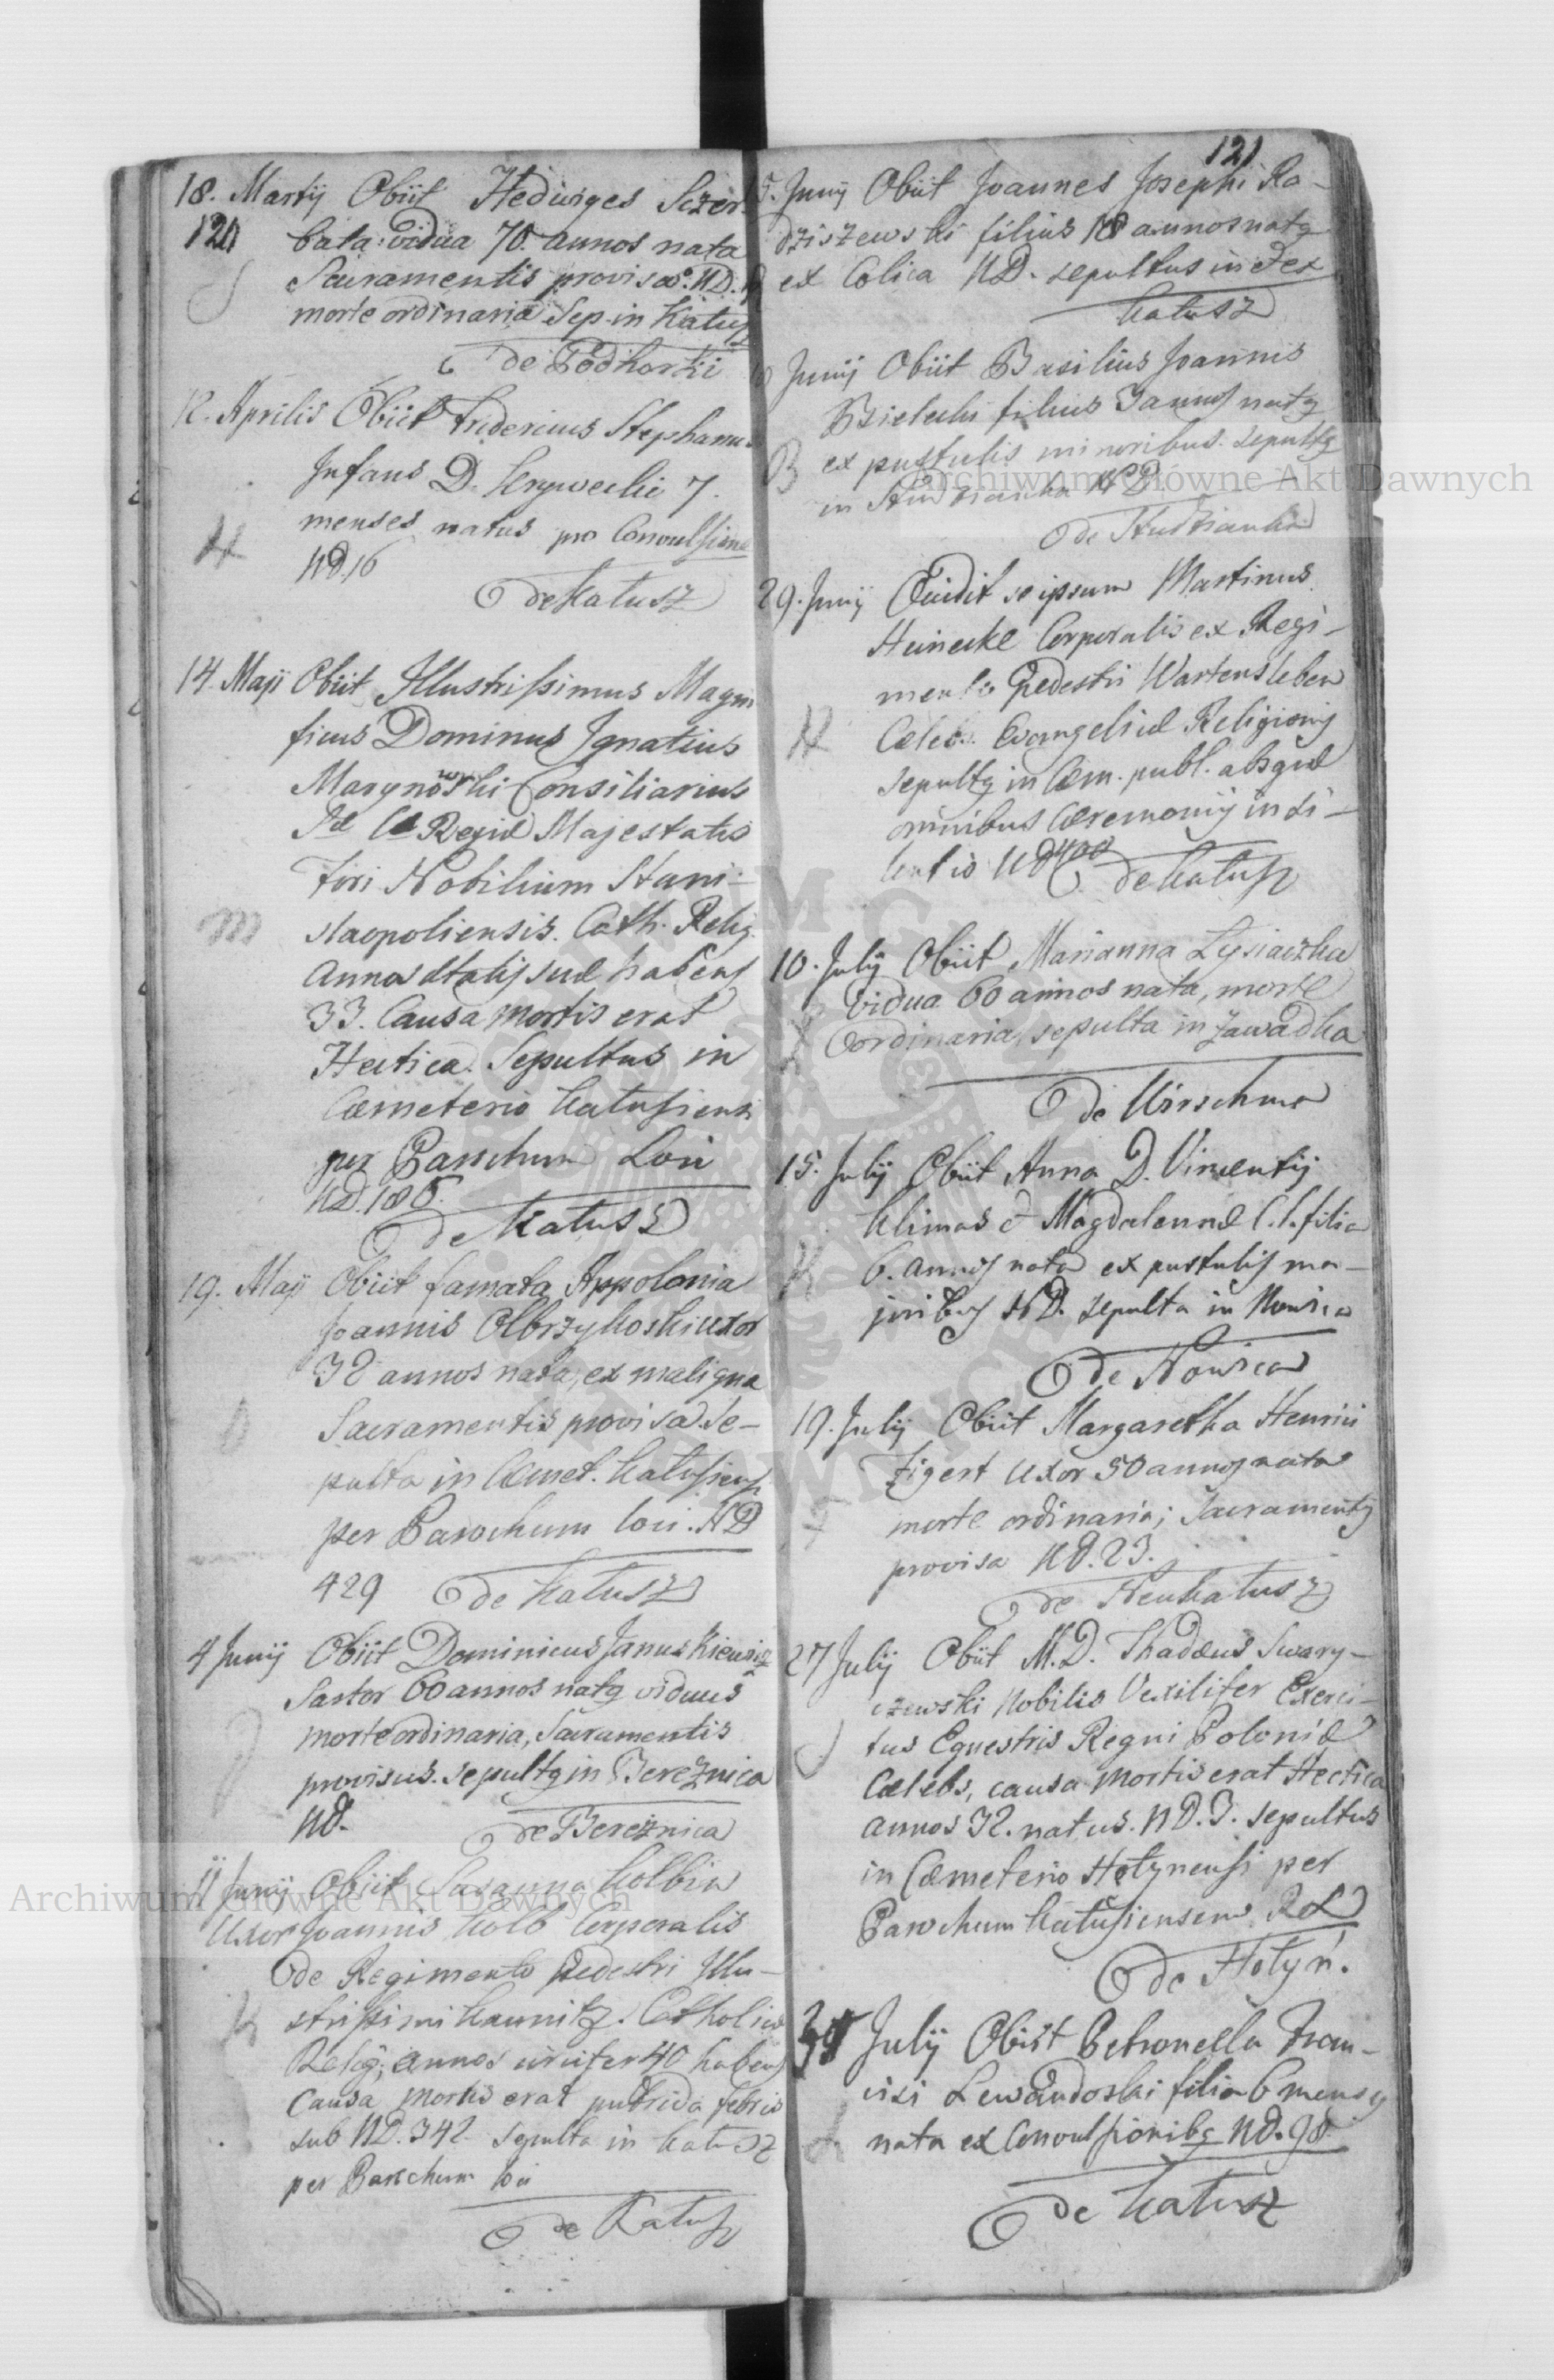 18. Martij Obiit Hedwiges Sczer-
120 bata vidua 70. annos nata
S
Sacramentis provisa ND.
morte ordinaria Sep. in Katusz
de Podhorki
12. Aprilis Obiit Fridericus Stephanus
Infans D. 7.
menses natus pro Convulsione
ND. 16
de Katusz
14. Maji Obiit Illustrissimus Magni
ficus Dominus Ignatius
Marynowski Consiliarius
Regiæ Majestatis
Fori Nobilium Stani-
M
slaopoliensis. Cath. Relig.
annos ætatis suæ habens
33. Causa mortis erat
Hectica. Sepultus in
Cæmeterio Katusiensi
per Parochum Loci
ND. 186.
de Katusz
19. Maji Obiit famata Appolonia
Joannis Olbrzykoski uxor
32 annos nata, ex maligna
O
Sacramentis provisa. Se-
pulta in Cæmet. Katusiens
per Parochum loci. ND
429 de Katusz
4 Junij Obiit Dominicus Januszkiewicz
Sartor 60 annos natq viduus
J
morte ordinaria, Sacramentis
provisus. sepultq in Bereznica
ND. de Bereznica
11 Junij Obiit Susanna Kolbin
Uxor Joannis Kolb Corporalis
de Regimento pedestri Illu-
K
strissimi Kaunitz. Catholicæ
Relig; annos circiter 40 habens
causa mortis erat putrida febris
sub ND. 342 sepulta in Katusz
per Parochum loci
de Katusz
121
5. Junij Obiit Joannes Josephi Ra-
dziszewski filius 18 annos natq
R
ex Colica ND. sepultus in
Katusz
Junij Obiit Basilius Joannis
Bielecki filius 3 annos natq
B
ex pustulis minoribus. sepultq
in Studzianka ND.
de Studzianka
29. Junij Occidit se ipsum Martinus
Heinecke Corporalis ex Regi-
mento Pedestri Wartensleben
H
Cælebs. Evangelicæ Religionis
sepultq in Cæm. publ. absque
omnibus Cæremoniis in si-
lentio ND 400
de Katusz
10. Julij Obiit Marianna Lysiaczka
vidua 60 annos nata, morte
ordinaria, sepulta in Zawadka
de Kirschma
15. Julij Obiit Anna D. Vincentij
Klimas & Magdalennæ C. l. filia
K
6. annos nata ex pustulis ma-
joribus ND. sepulta in Nowica
de Nowica
19. Julij Obiit Margaretha Henrici
Zigert Uxor 50 annos nata
morte ordinaria; Sacramentis
provisa ND. 23.
de Neukatusz
27 Julij Obiit M. D. Thadæus Swary-
czewski Nobilis Vexilifer Exerci-
S
tus Equestris Regni Poloniæ
Cælebs, causa mortis erat Hectica
annos 32. natus. ND. 3. sepultus
in Cæmeterio Hotynensi per
Parochum Katusiensem R L
de Hotyń.
Julij Obiit Petronella Fran-
cisi Lewandoski filia 6 mensq
L
nata ex Convulsionibq ND. 98.
de Katusz
Archiwum Główne Akt Dawnych
Archiwum Główne Akt Dawnych